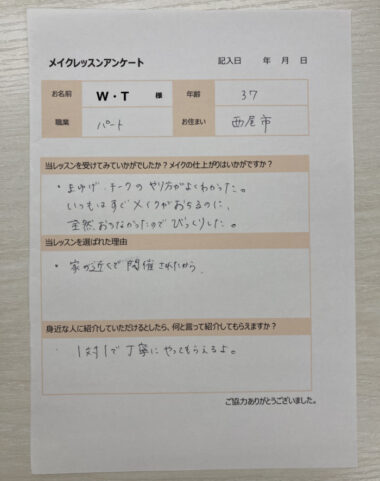 メイクレッスンアンケート 記入日 年 月 日
お名前 W・T 様 年齢 37
職業 パート お住まい 西尾市
当レッスンを受けてみていかがでしたか？メイクの仕上がりはいかがですか？
・まゆげ、チークのやり方がよくわかった。
いつもはすぐメイクがおちるのに、
全然、おちなかったのでびっくりした。
当レッスンを選ばれた理由
・家の近くで開催されたから、
身近な人に紹介していただけるとしたら、何と言って紹介してもらえますか？
1対1で丁寧にやってもらえるよ。
ご協力ありがとうございました。